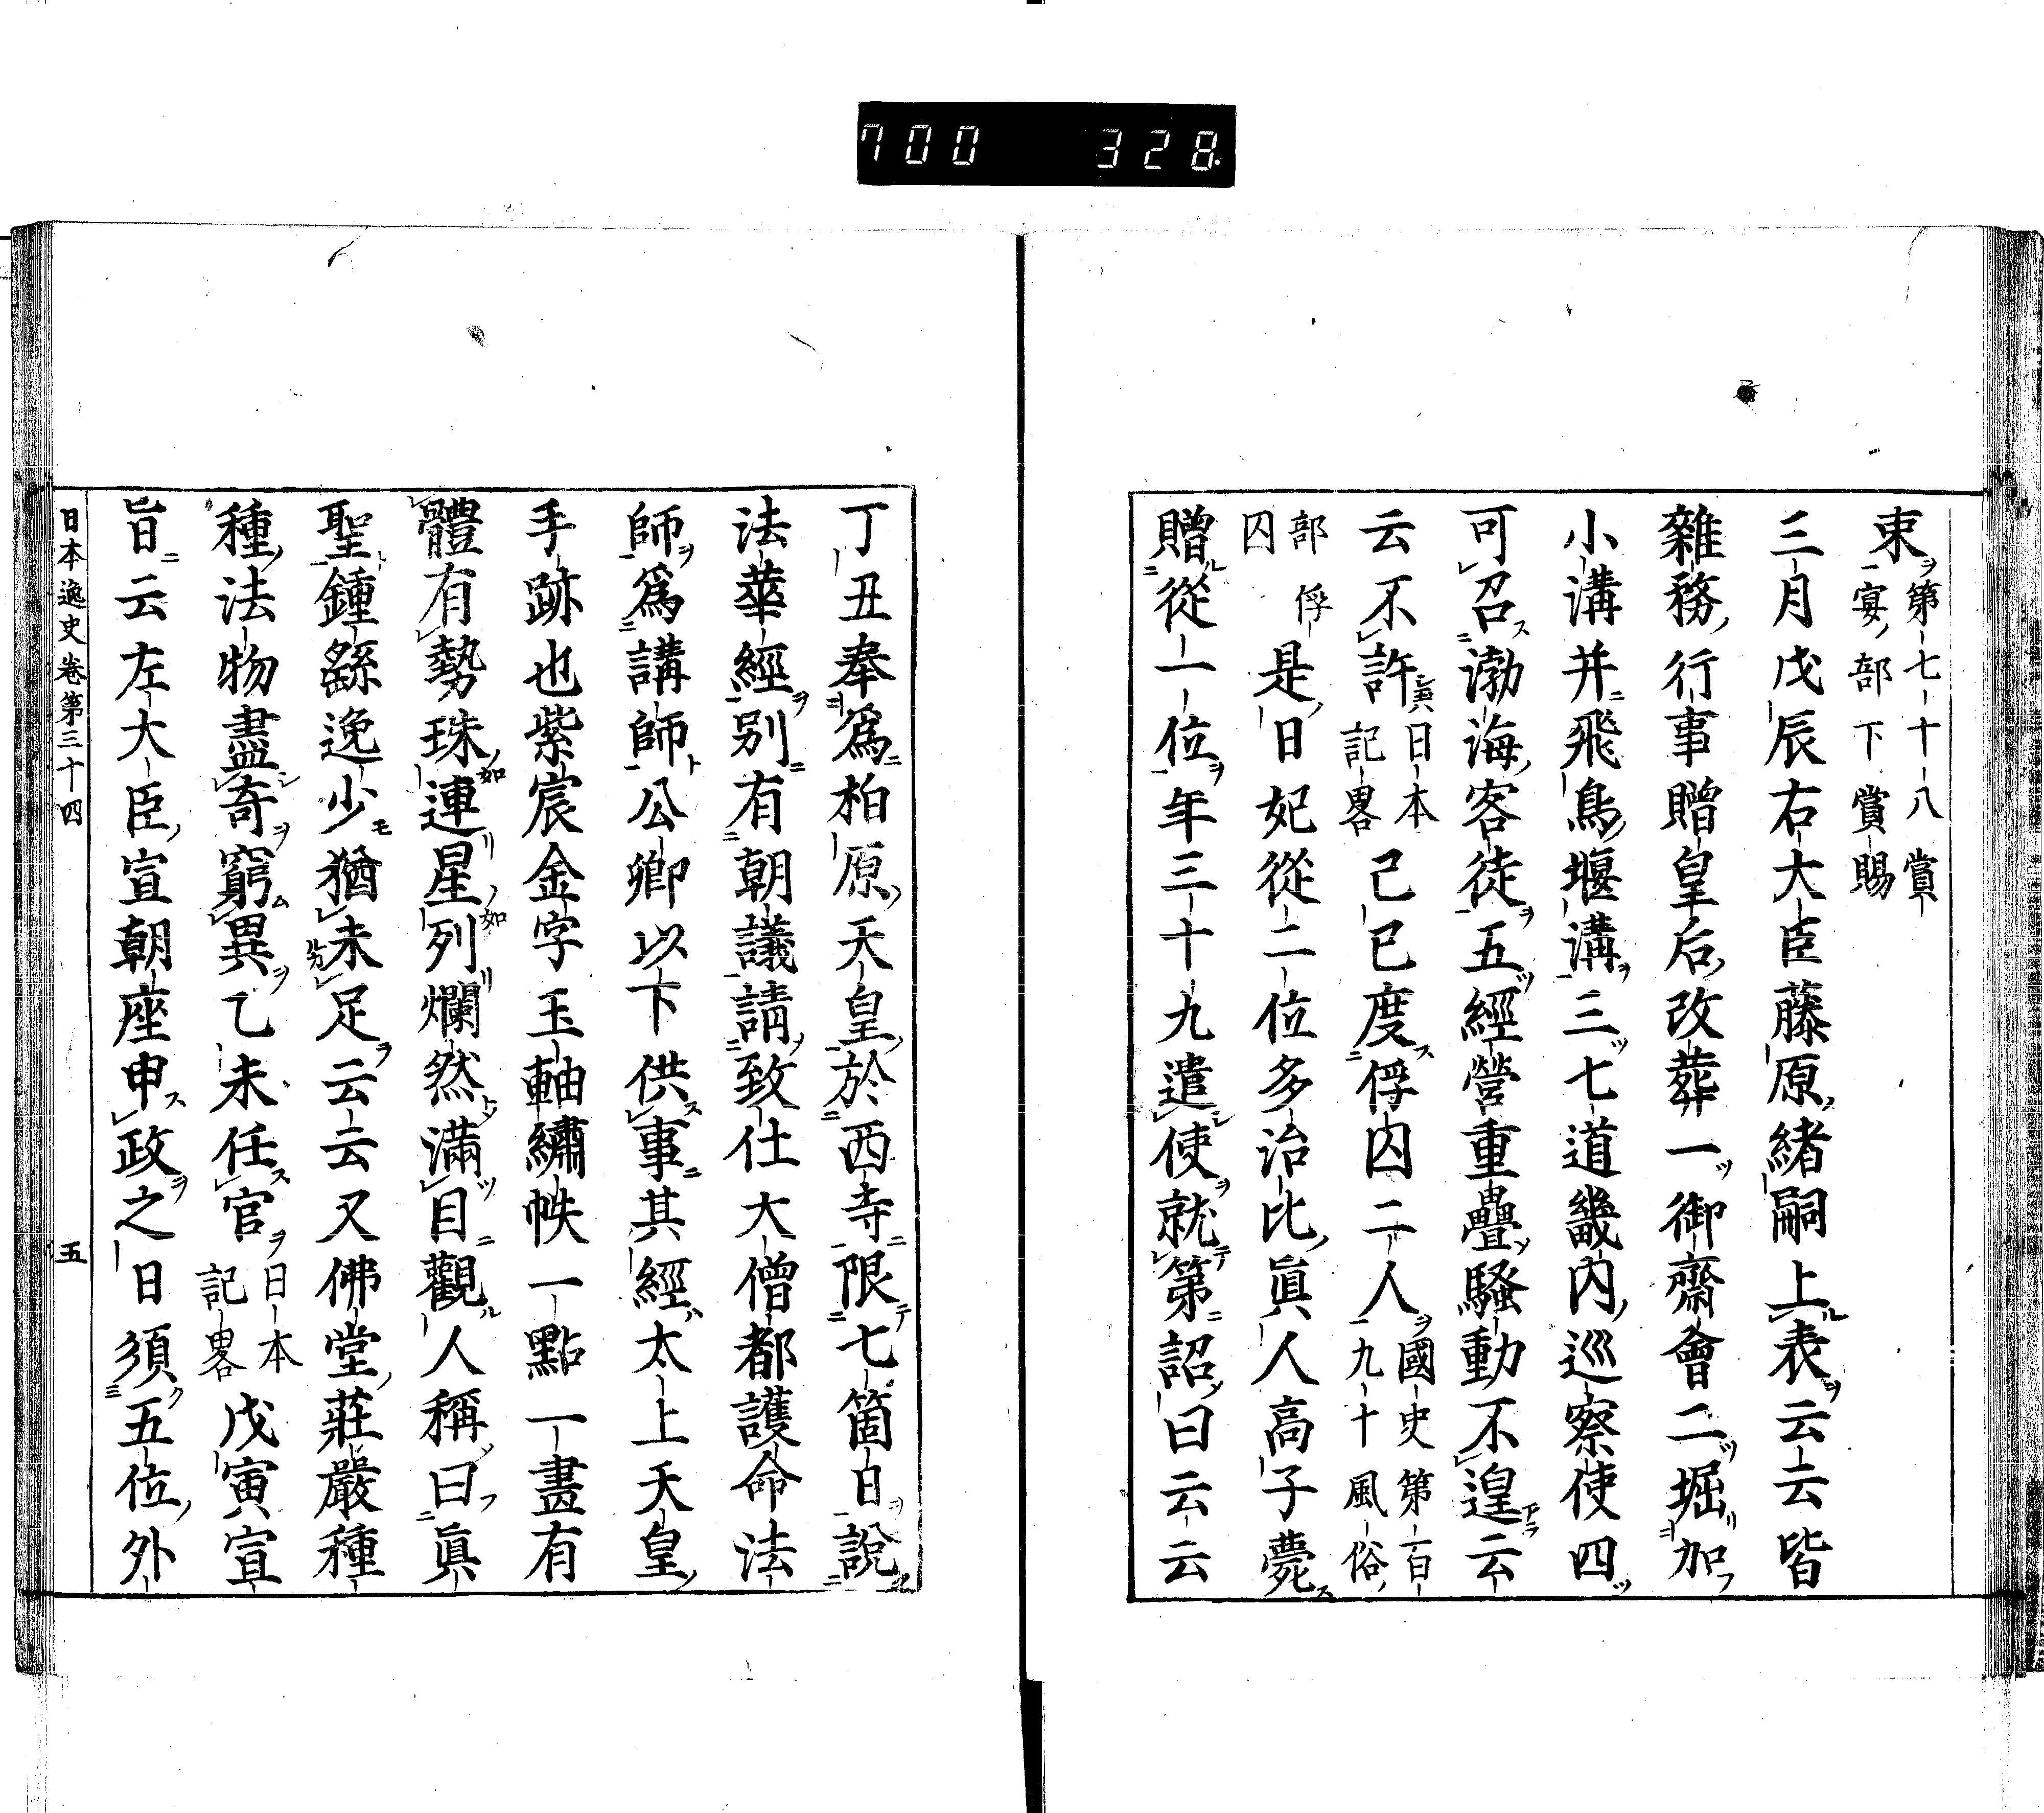 700 328
束 第七十八賞宴部下賞賜
三月戊辰右大臣藤原緒嗣上表云云皆
雜務行事贈皇后改葬一御齋會二堀加
小溝并飛鳥堰溝三七道畿内巡察使四
可召渤海客徒五經營重疊騷動不遑云
云不許 日本記畧 己巳度俘囚二人 國史第百九十風俗
部俘囚 是日妃從二位多治比眞人高子薨
贈從一位年三十九遣使就第詔曰云云
丁丑奉爲柏原天皇於西寺限七箇日說
法華經別有朝議請致仕大僧都護命法
師爲講師公卿以下供事其經太上天皇
手跡也紫宸金字玉軸繡帙一點一畫有
體有勢珠連星列爛然滿目觀人稱曰眞
聖鍾繇逸少猶未足云云又佛堂莊嚴種
種法物盡奇窮異乙未任官 日本記畧 戊寅宣
旨云左大臣宣朝座申政之日須五位外
日本逸史卷第三十四 五